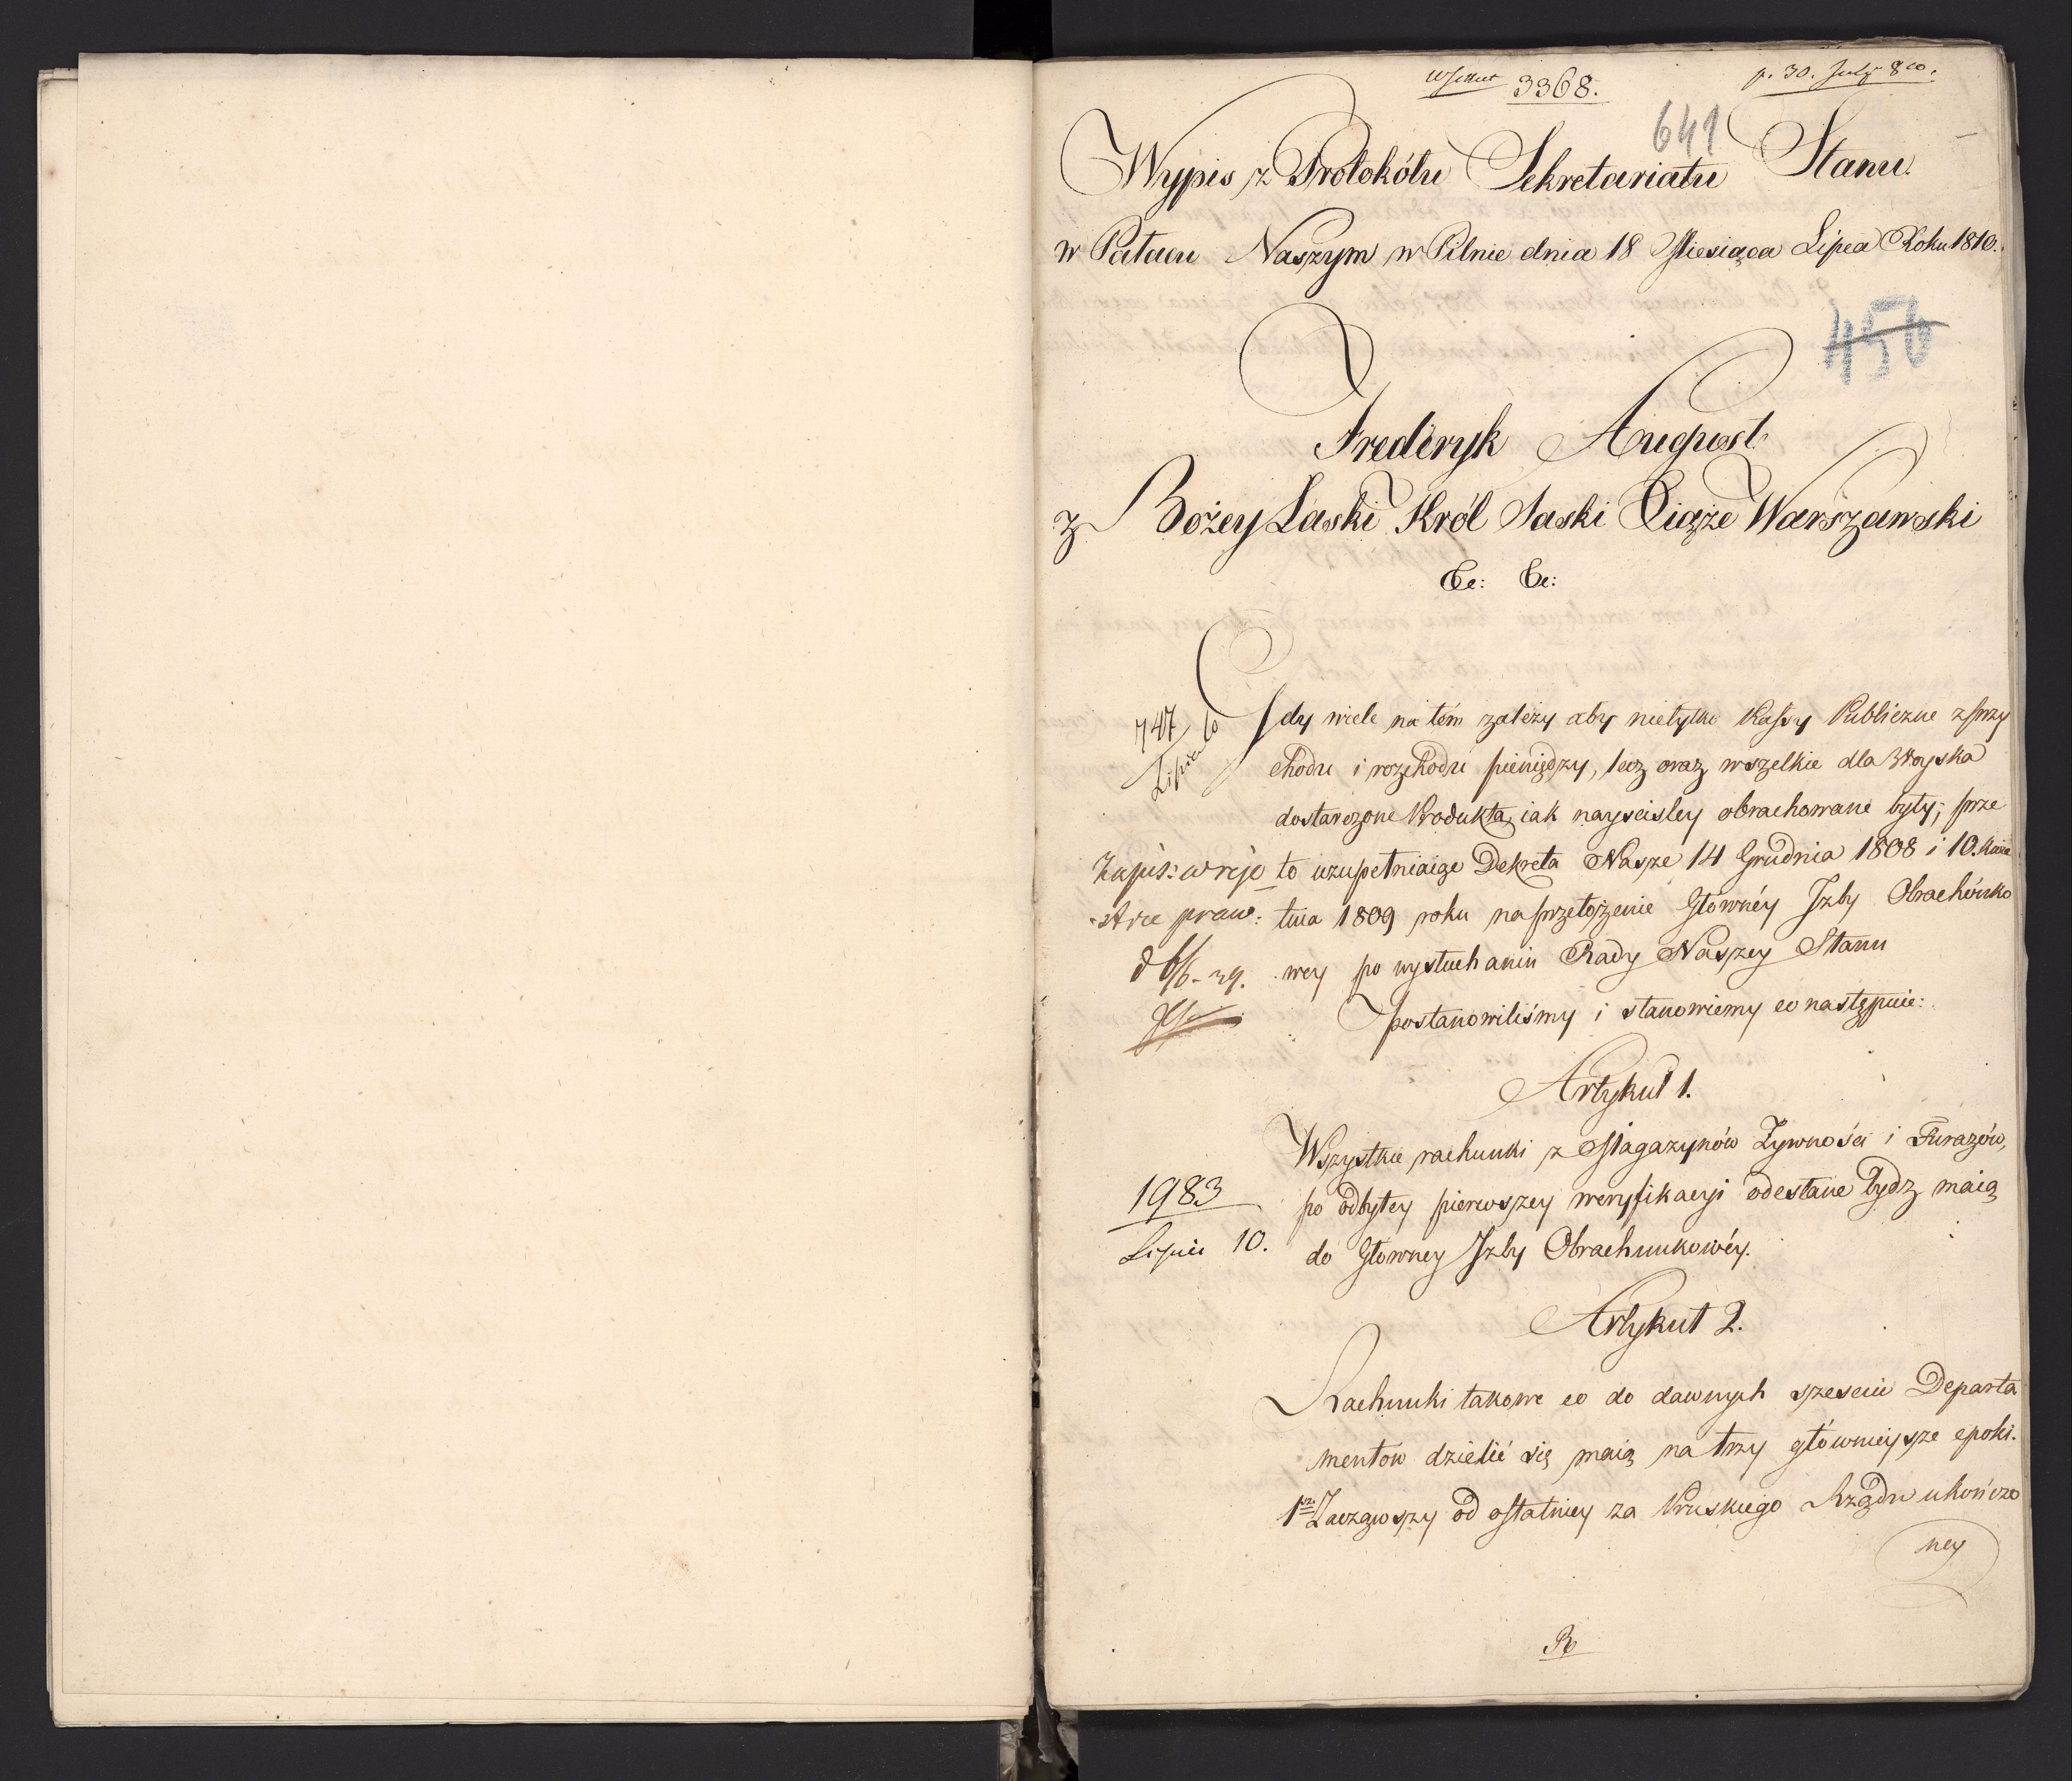 3368.
p. 30. July 810.
641
Wypis z Protokółu Sekretariatu Stanu.
w Pałacu Naszym w Pilnic dnia 18 Miesiąca Lipca Roku 1810.
456
Frederyk August
z Bożey Łaski Król Saski Xiąże Warszawski
&c: &c:
747
Lipca 10
Gdy wiele na tém zależy aby nietylko Kassy Publiczne z przy
chodu i rozchodu pieniędzy, lecz oraz wszelkie dla Woyska
dostarczone Produkta, iak nayscisley obrachowane były; prze
Zapis: w reje
to uzupełniaiąc Dekreta Nasze 14 Grudnia 1808 i 10. Kwie
strze praw:
tnia 1809 roku na przełożenie Główney Izby Obrachunko
wey po wysłuchaniu Rady Naszey Stanu
postanowiliśmy i stanowiemy co następuie:
Artykuł 1.
Wszystkie rachunki z Magazynów Żywności i Furażów,
1983
Lipiec 10.
po odbytey pierwszey weryfikacyi odesłane bydz maią
do Głowney Izby Obrachunkowéy.
Artykuł 2.
Rachunki takowe co do dawnych sześciu Departa
mentów dzielić się maią na trzy głównieysze epoki.
1sze Zacząwszy od ostatniey za Pruskiego Rządu ukończo
ney